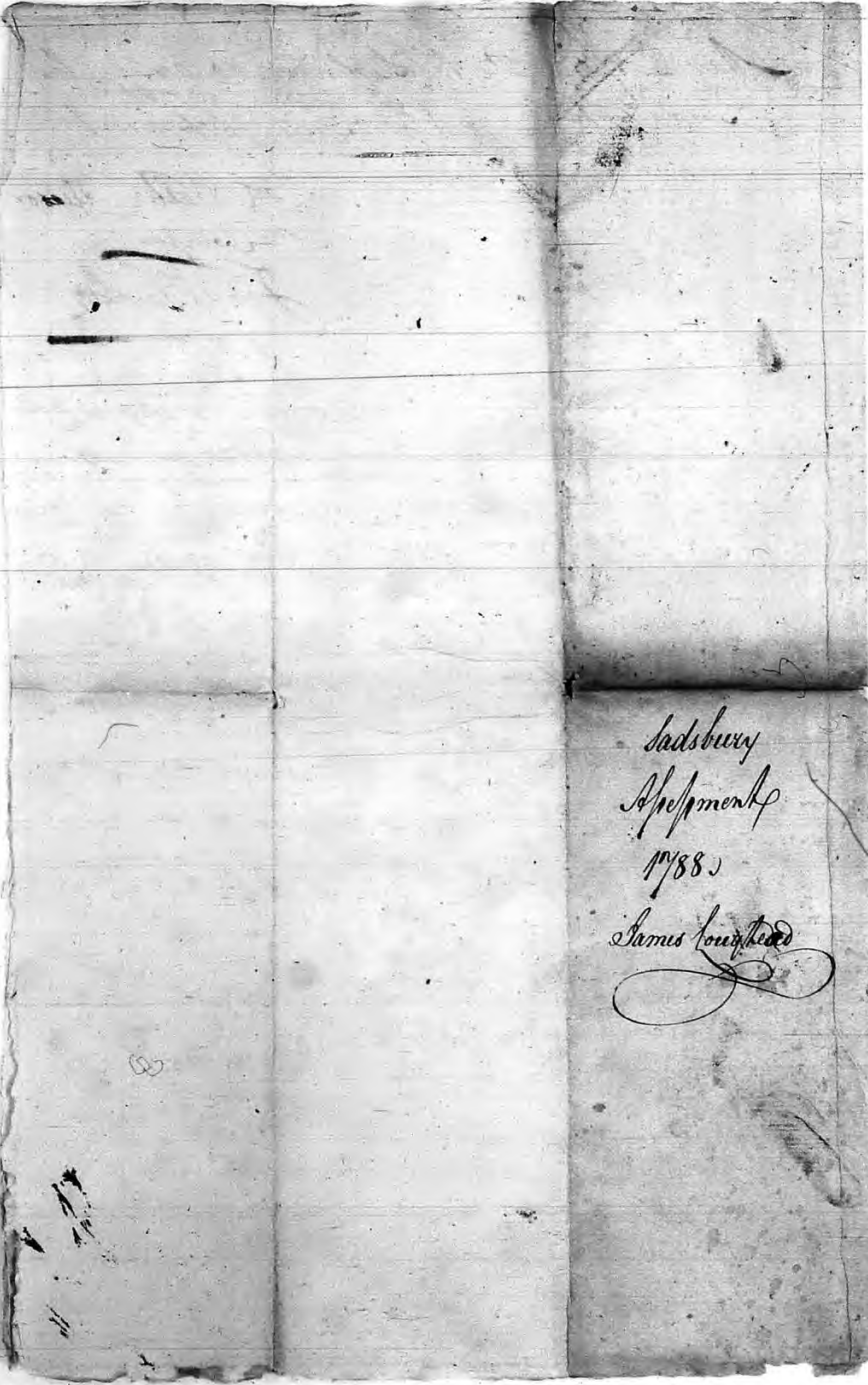 Sadsbury
Assessment
1788
James Loughead